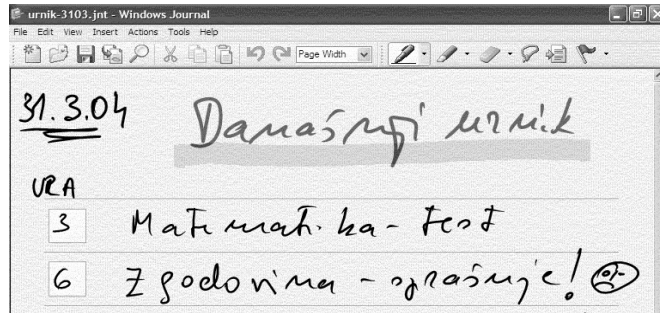 urnik-3103.jnt - Windows Journal
File Edit View Insert Actions Tools Help
Page Width
31.3.04
Današnji urnik
URA
3 Matematika - test
6 Zgodovina - sprašuje!